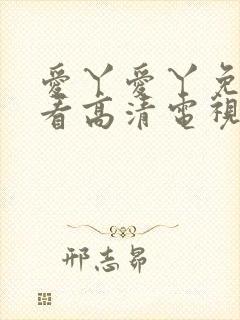 愛丫愛丫免
看高清電視
邢志昴